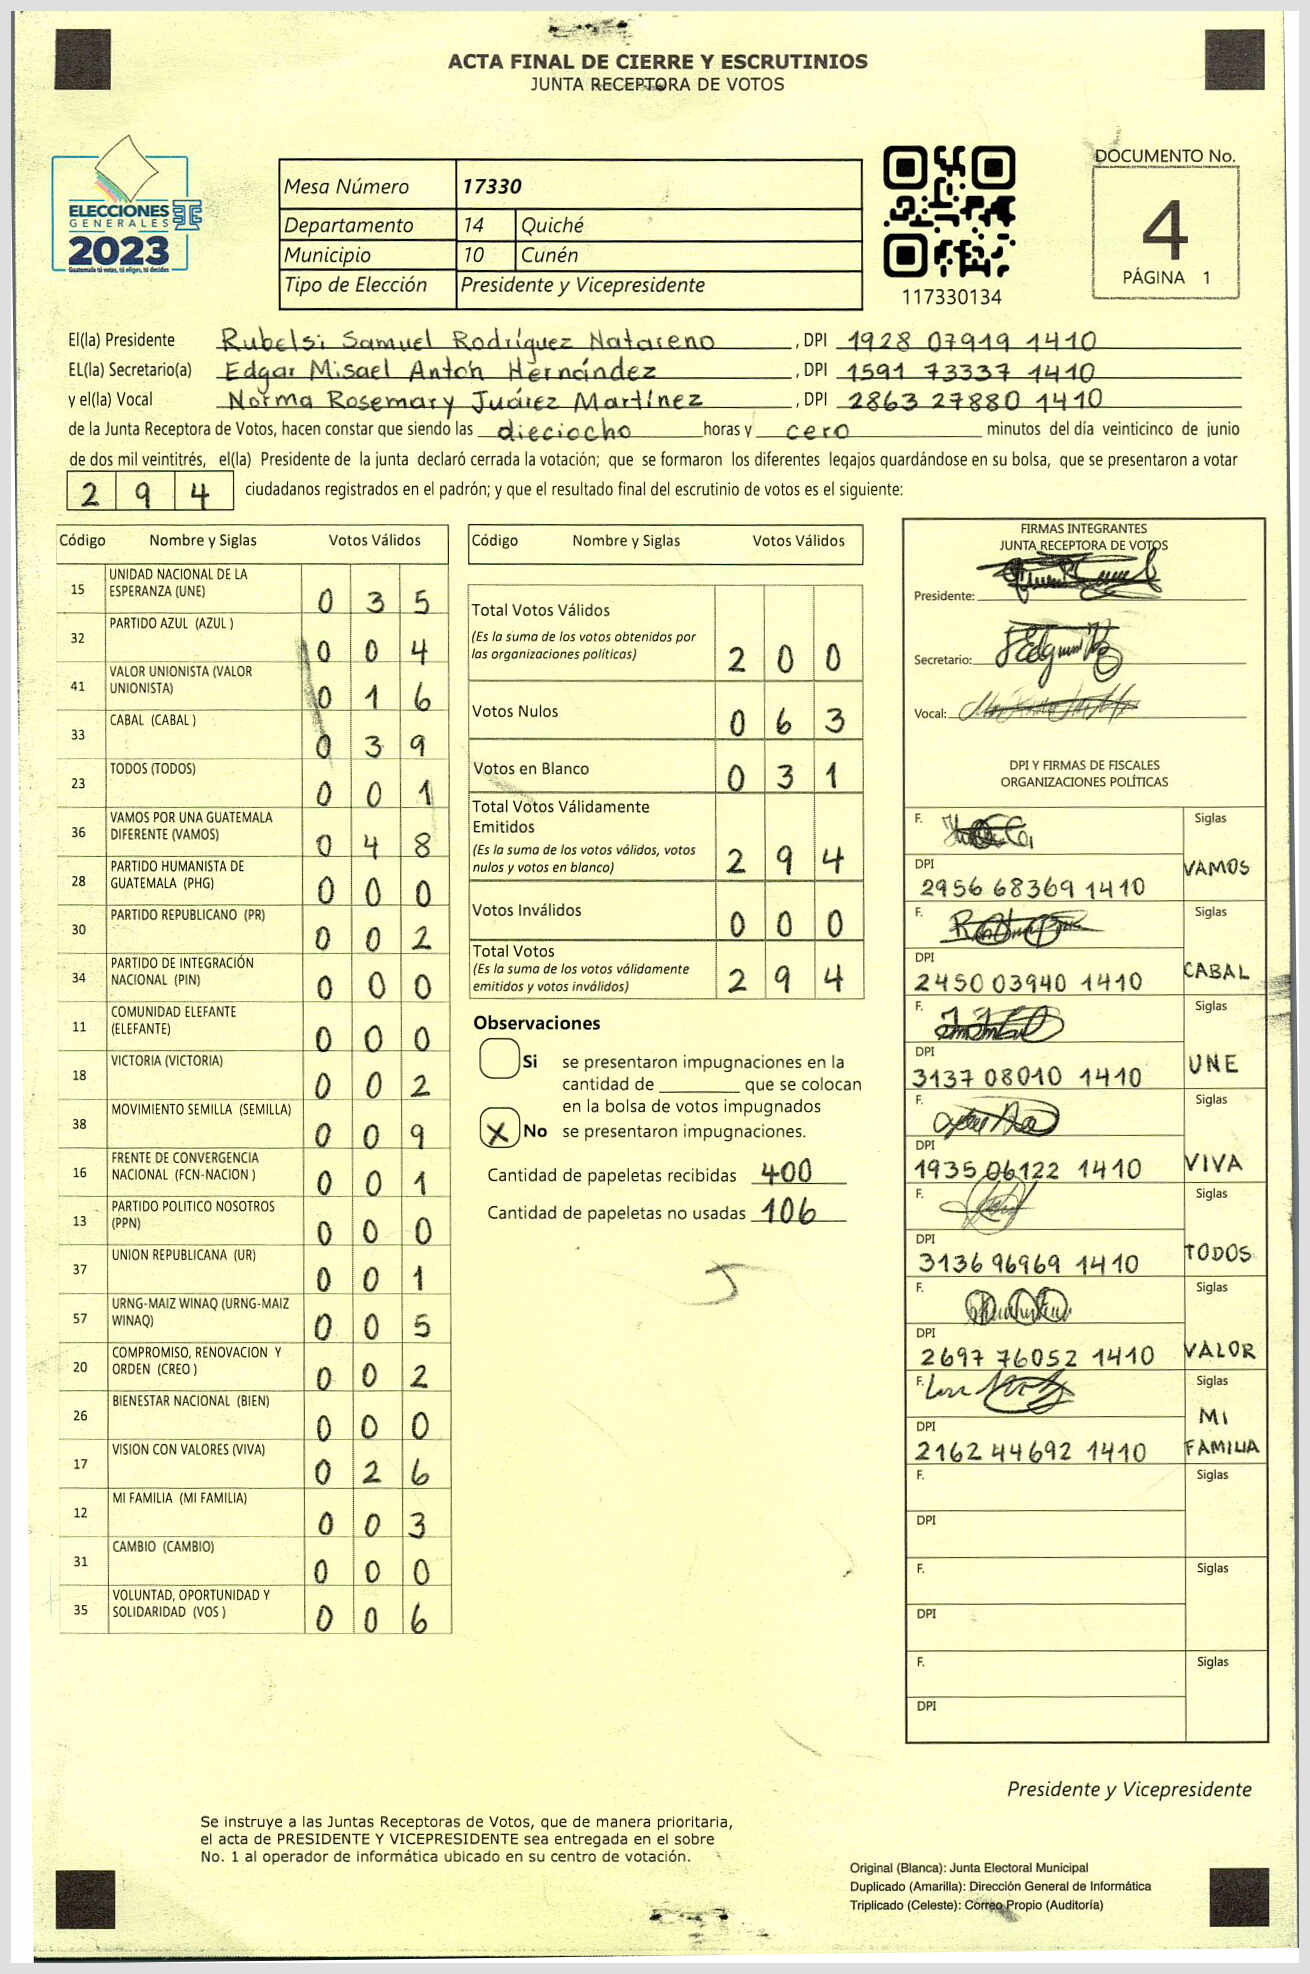 ACTA FINAL DE CIERRE Y ESCRUTINIOS
JUNTA RECEPTORA DE VOTOS
ELECCIONES
GENERALES
2023
Guatemala tú votas, tú eliges, tú decides
Mesa Número 17330
Departamento 14 Quiché
Municipio 10 Cunén
Tipo de Elección Presidente y Vicepresidente
117330134
DOCUMENTO No.
4
PÁGINA 1
El(la) Presidente Rubelsi Samuel Rodríguez Natareno, DPI 1928 07919 1410
EL(la) Secretario(a) Edgar Misael Antón Hernández, DPI 1591 73337 1410
y el(la) Vocal Norma Rosemary Juárez Martínez, DPI 2863 27880 1410
de la Junta Receptora de Votos, hacen constar que siendo las dieciocho horas y cero minutos del día veinticinco de junio
de dos mil veintitrés, el(la) Presidente de la junta declaró cerrada la votación; que se formaron los diferentes legajos guardándose en su bolsa, que se presentaron a votar
294 ciudadanos registrados en el padrón; y que el resultado final del escrutinio de votos es el siguiente:
Código Nombre y Siglas Votos Válidos
15 UNIDAD NACIONAL DE LA
ESPERANZA (UNE) 0 3 5
32 PARTIDO AZUL (AZUL ) 0 0 4
41 VALOR UNIONISTA (VALOR
UNIONISTA) 0 1 6
33 CABAL (CABAL ) 0 3 9
23 TODOS (TODOS) 0 0 1
36 VAMOS POR UNA GUATEMALA
DIFERENTE (VAMOS) 0 4 8
28 PARTIDO HUMANISTA DE
GUATEMALA (PHG) 0 0 0
30 PARTIDO REPUBLICANO (PR) 0 0 2
34 PARTIDO DE INTEGRACIÓN
NACIONAL (PIN) 0 0 0
11 COMUNIDAD ELEFANTE
(ELEFANTE) 0 0 0
18 VICTORIA (VICTORIA) 0 0 2
38 MOVIMIENTO SEMILLA (SEMILLA) 0 0 9
16 FRENTE DE CONVERGENCIA
NACIONAL (FCN-NACION ) 0 0 1
13 PARTIDO POLITICO NOSOTROS
(PPN) 0 0 0
37 UNION REPUBLICANA (UR) 0 0 1
57 URNG-MAIZ WINAQ (URNG-MAIZ
WINAQ) 0 0 5
20 COMPROMISO, RENOVACION Y
ORDEN (CREO ) 0 0 2
26 BIENESTAR NACIONAL (BIEN) 0 0 0
17 VISION CON VALORES (VIVA) 0 2 6
12 MI FAMILIA (MI FAMILIA) 0 0 3
31 CAMBIO (CAMBIO) 0 0 0
35 VOLUNTAD, OPORTUNIDAD Y
SOLIDARIDAD (VOS ) 0 0 6
Código Nombre y Siglas Votos Válidos
Total Votos Válidos
(Es la suma de los votos obtenidos por
las organizaciones políticas) 2 0 0
Votos Nulos 0 6 3
Votos en Blanco 0 3 1
Total Votos Válidamente
Emitidos
(Es la suma de los votos válidos, votos
nulos y votos en blanco) 2 9 4
Votos Inválidos 0 0 0
Total Votos
(Es la suma de los votos válidamente
emitidos y votos inválidos) 2 9 4
Observaciones
Si se presentaron impugnaciones en la
cantidad de ________ que se colocan
en la bolsa de votos impugnados
X No se presentaron impugnaciones.
Cantidad de papeletas recibidas 400
Cantidad de papeletas no usadas 106
FIRMAS INTEGRANTES
JUNTA RECEPTORA DE VOTOS
Presidente:
Secretario:
Vocal:
DPI Y FIRMAS DE FISCALES
ORGANIZACIONES POLÍTICAS
F. Siglas
DPI VAMOS
2956 68369 1410
F. Siglas
DPI CABAL
2450 03940 1410
F. Siglas
DPI UNE
3137 08010 1410
F. Siglas
DPI VIVA
1935 06122 1410
F. Siglas
DPI TODOS
3136 96969 1410
F. Siglas
DPI VALOR
2697 76052 1410
F. Siglas
DPI MI
2162 44692 1410 FAMILIA
F. Siglas
DPI
F. Siglas
DPI
F. Siglas
DPI
Presidente y Vicepresidente
Se instruye a las Juntas Receptoras de Votos, que de manera prioritaria,
el acta de PRESIDENTE Y VICEPRESIDENTE sea entregada en el sobre
No. 1 al operador de informática ubicado en su centro de votación.
Original (Blanca): Junta Electoral Municipal
Duplicado (Amarilla): Dirección General de Informática
Triplicado (Celeste): Correo Propio (Auditoría)